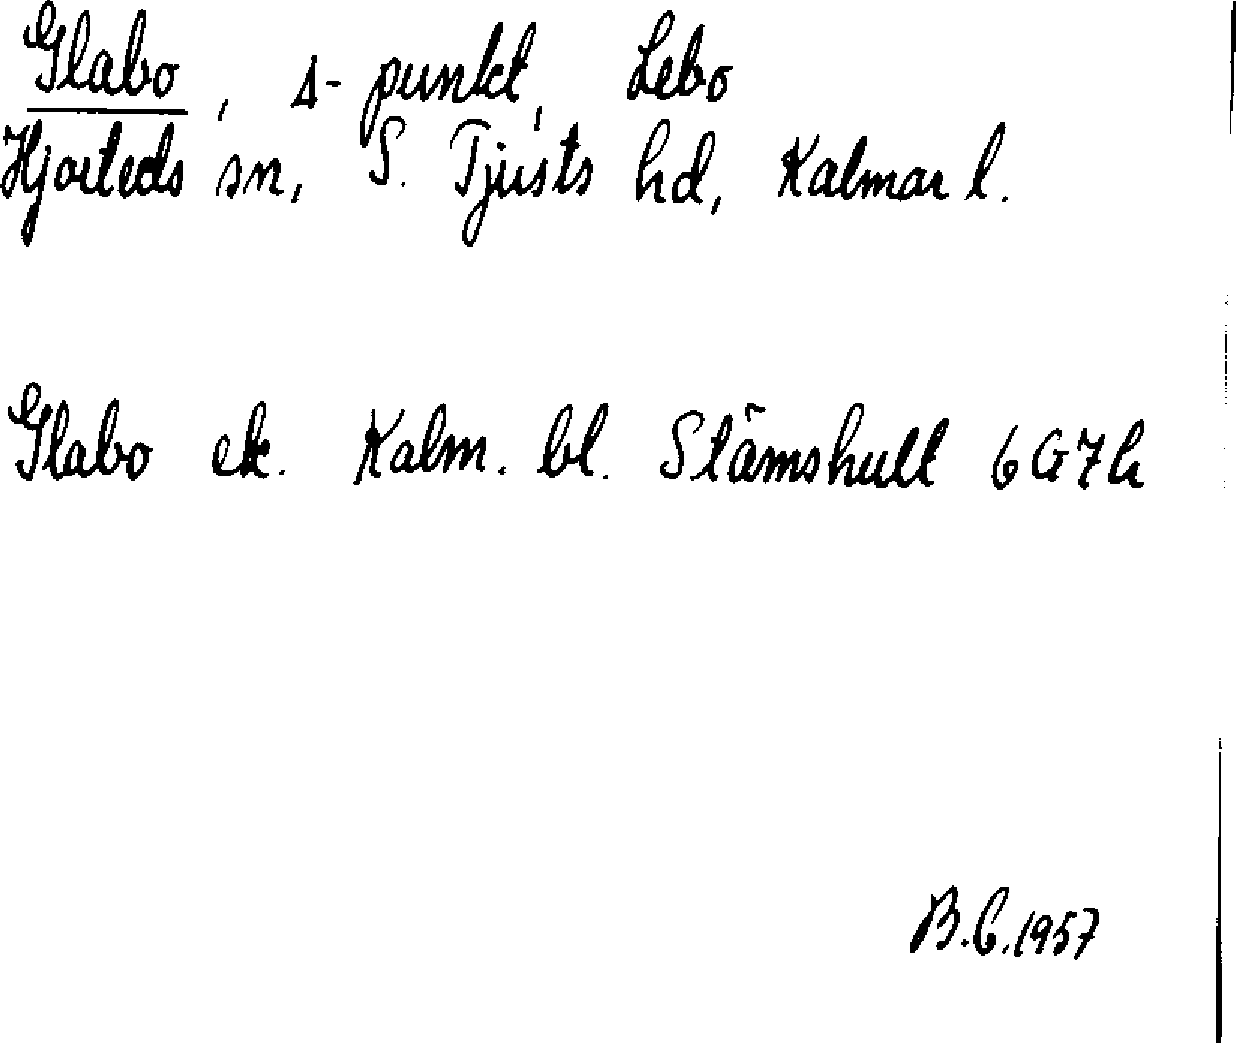 Glabo, s-punkt, Lebo
Hjorteds sn, S. Tjusts hd, Kalmar l.
Glabo ek. Kalm. bl. Stämshult 6G7h
B.C.1957